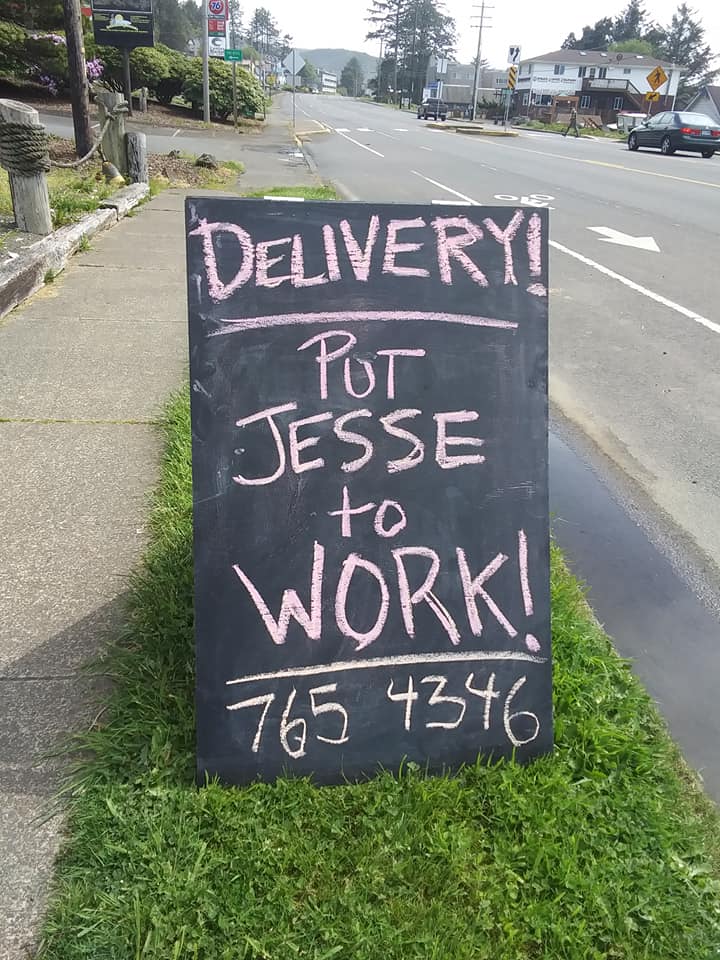 DELIVERY!
PUT
JESSE
to
WORK!
765 4346
76